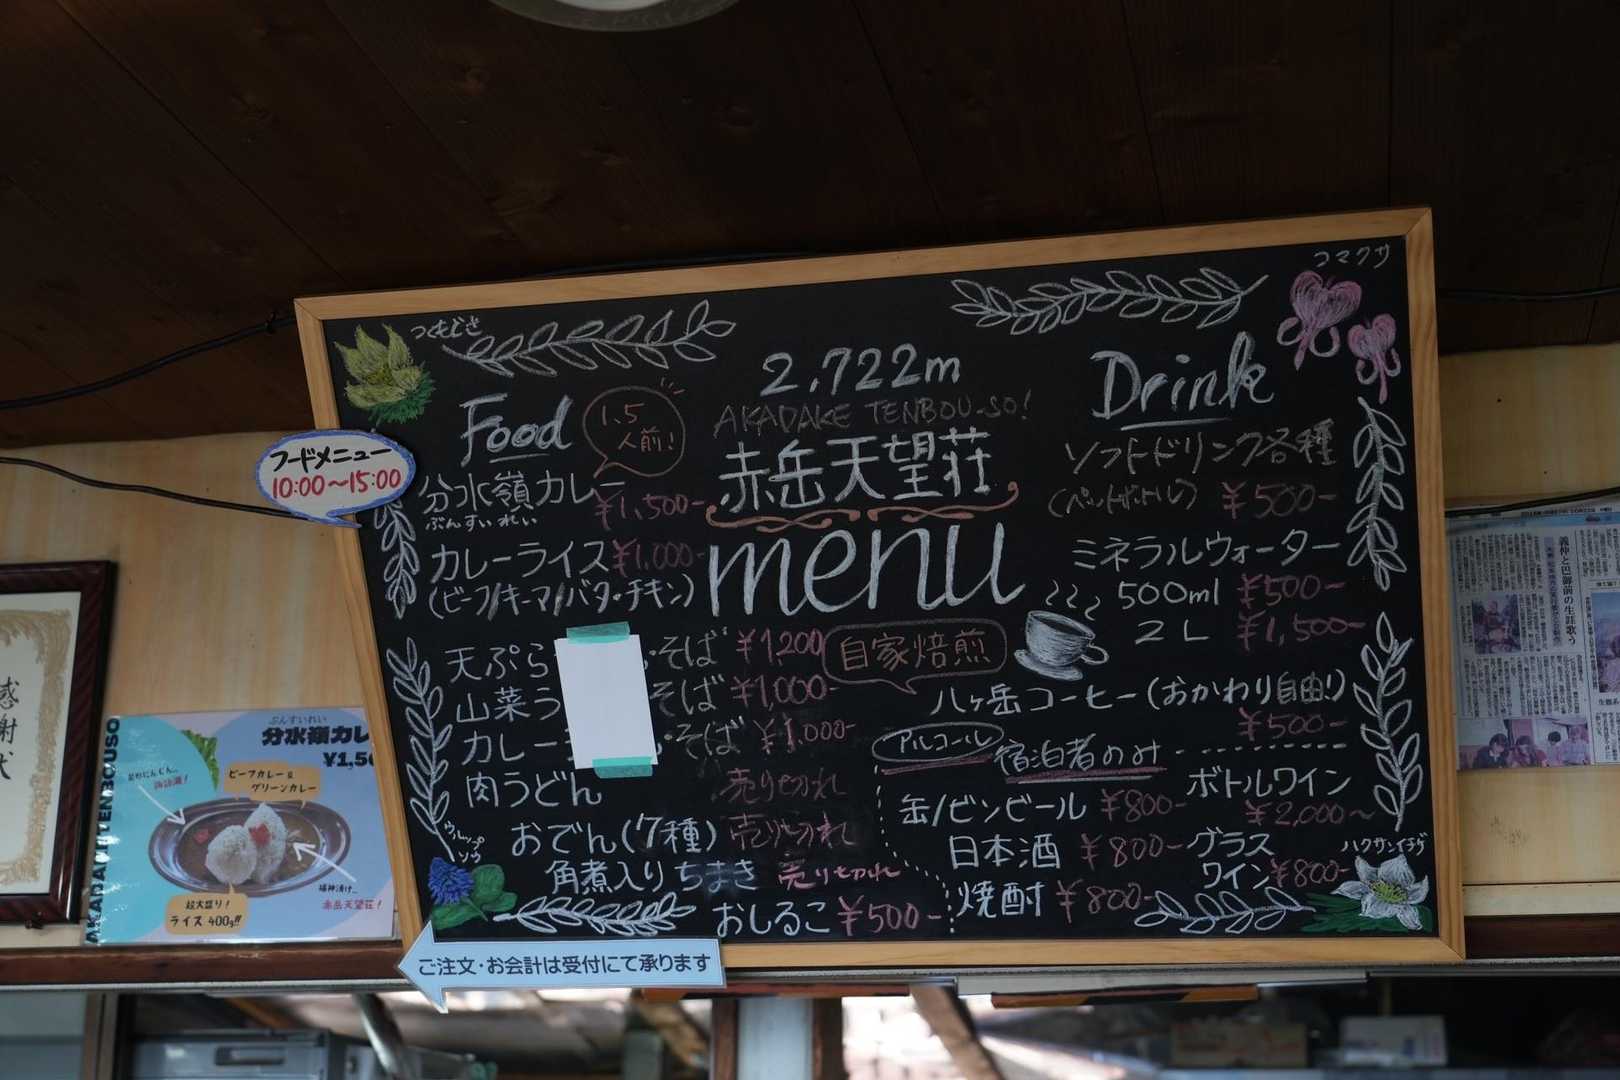 コマクサ
つくもぐさ
2,722m
AKADAKE TENBOU-SO!
赤岳天望荘
menu
Food
1.5
人前!
フードメニュー
10:00〜15:00
分水嶺カレー ¥1,500-
ぶんすいれい
カレーライス ¥1,000-
(ビーフ/キーマ/バタ・チキン)
天ぷら ・そば ¥1,200
山菜う そば ¥1,000-
カレー ・そば ¥1,000-
肉うどん 売り切れ
おでん(7種) 売り切れ
角煮入りちまき 売り切れ
おしるこ ¥500-
ウルップソウ
Drink
ソフトドリンク各種
(ペットボトル) ¥500-
ミネラルウォーター
500ml ¥500-
2L ¥1,500-
自家焙煎
八ヶ岳コーヒー(おかわり自由!)
¥500-
アルコール 宿泊者のみ
缶/ビンビール ¥800-
日本酒 ¥800-
焼酎 ¥800-
ボトルワイン
¥2,000〜
グラス
ワイン ¥800-
ハクサンイチゲ
ご注文・お会計は受付にて承ります
感謝状
ぶんすいれい
分水嶺カレ
¥1,50
ビーフカレー&
グリーンカレー
福神漬け
赤岳天望荘!
超大盛り!
ライス 400g!!
義仲と巴御前の生涯歌う